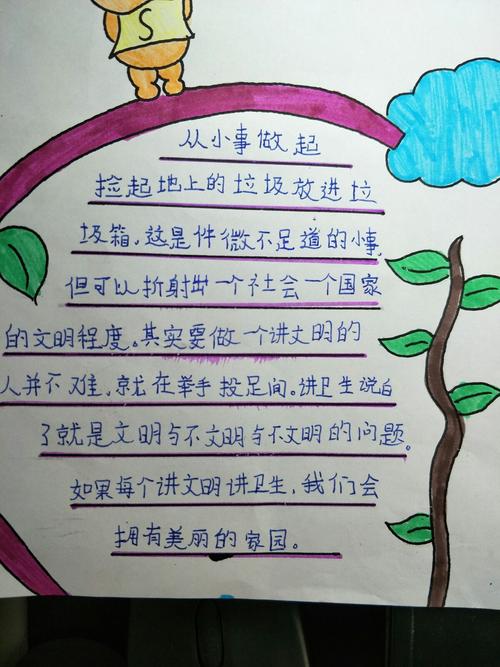 S
从小事做起
捡起地上的垃圾放进垃
圾箱,这是件微不足道的小事,
但可以折射出一个社会一个国家
的文明程度。其实要做一个讲文明的
人并不难,就在举手投足间。讲卫生说白
了就是文明与不文明与不文明的问题。
如果每个讲文明讲卫生,我们会
拥有美丽的家园。